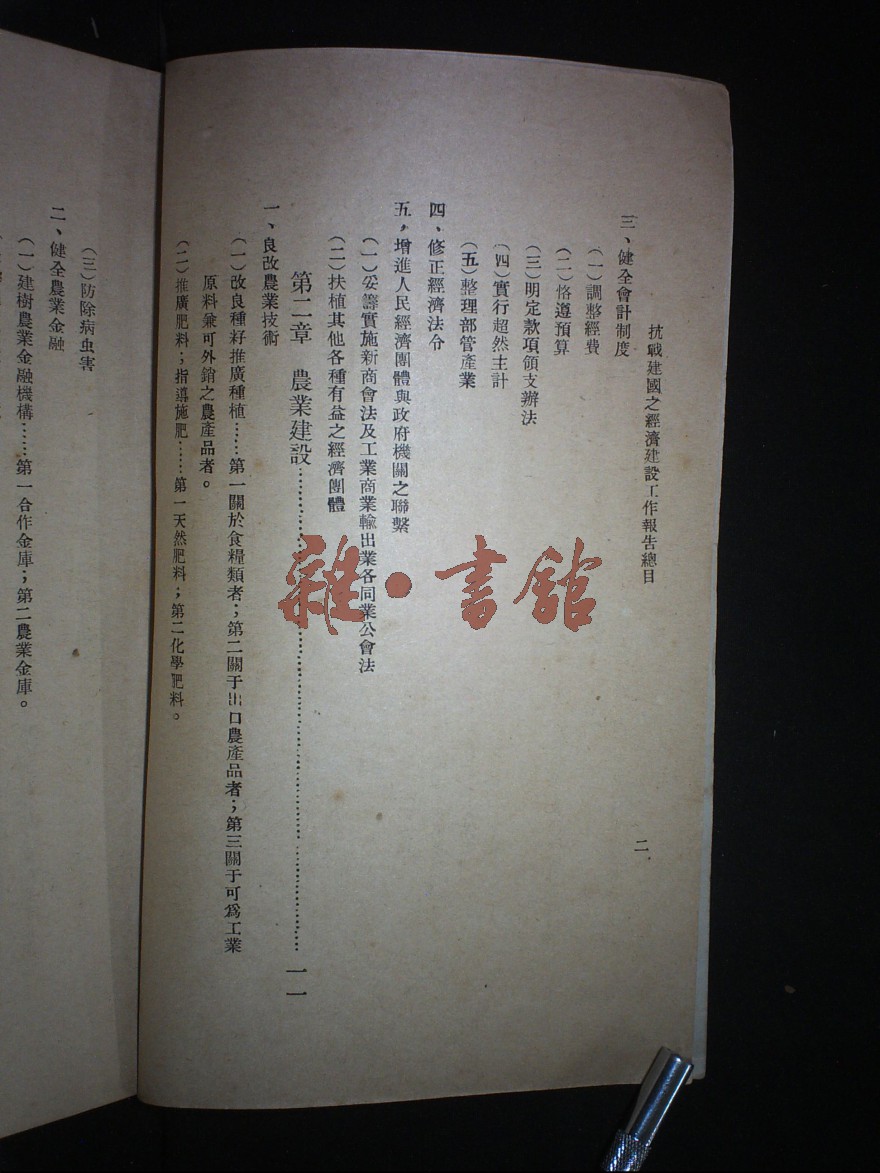 抗戰建國之經濟建設工作報告總目
二
三、健全會計制度
(一)調整經費
(二)恪遵預算
(三)明定款項領支辦法
(四)實行超然主計
(五)整理部管產業
四、修正經濟法令
五，增進人民經濟團體與政府機關之聯繫
(一)妥籌實施新商會法及工業商業輸出業各同業公會法
(二)扶植其他各種有益之經濟團體
第二章 農業建設……………………………………一一
一、良改農業技術
(一)改良種籽推廣種植……第一關於食糧類者；第二關于出口農產品者；第三關于可爲工業
原料兼可外銷之農產品者。
(二)推廣肥料；指導施肥……第一天然肥料；第二化學肥料。
(三)防除病虫害
二、健全農業金融
(一)建樹農業金融機構……第一合作金庫；第二農業金庫。
雜·書館